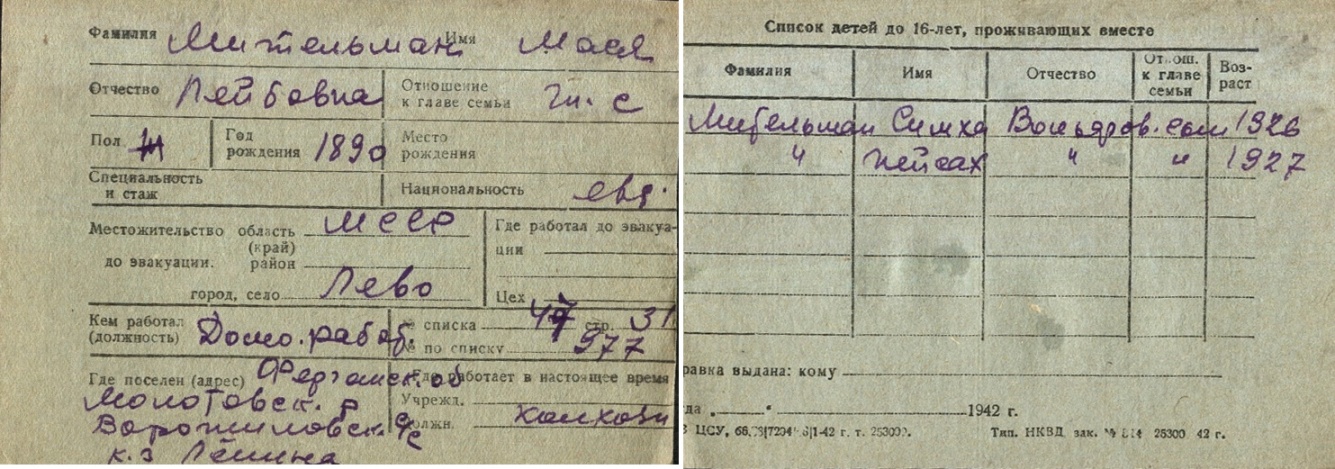 Фамилия Мительман Имя Мася
Отчество Лейбовна Отношение к главе семьи гл. с
Пол Год рождения 1890 Место рождения
Специальность и стаж Национальность евр.
Местожительство до эвакуации. область (край) МССР
район
город, село Лево
Где работал до эвакуации
Цех
Кем работал (должность) Домо. работ.
№ списка 47 стр. 31
№ по списку 977
Где поселен (адрес) Ферганск. об
Молотовск. р
Ворошиловск. с/с
к. з Ленина
Где работает в настоящее время
Учрежд.
Должн. колхозн
Список детей до 16-лет, проживающих вместе
Фамилия Имя Отчество Отнош. к главе семьи Возраст
Мительман Симха сын 1926
" Пейсах " " 1927
равка выдана: кому
да „ “ 1942 г.
ЦСУ, 1-42 г. т. 25300. Тип. НКВД зак. № 25300 42 г.